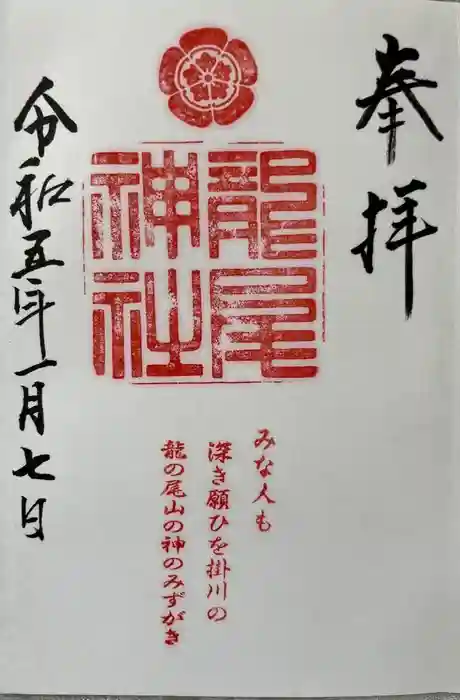 奉拝
龍尾
神社
みな人も
深き願ひを掛川の
龍の尾山の神のみずがき
令和五年一月七日